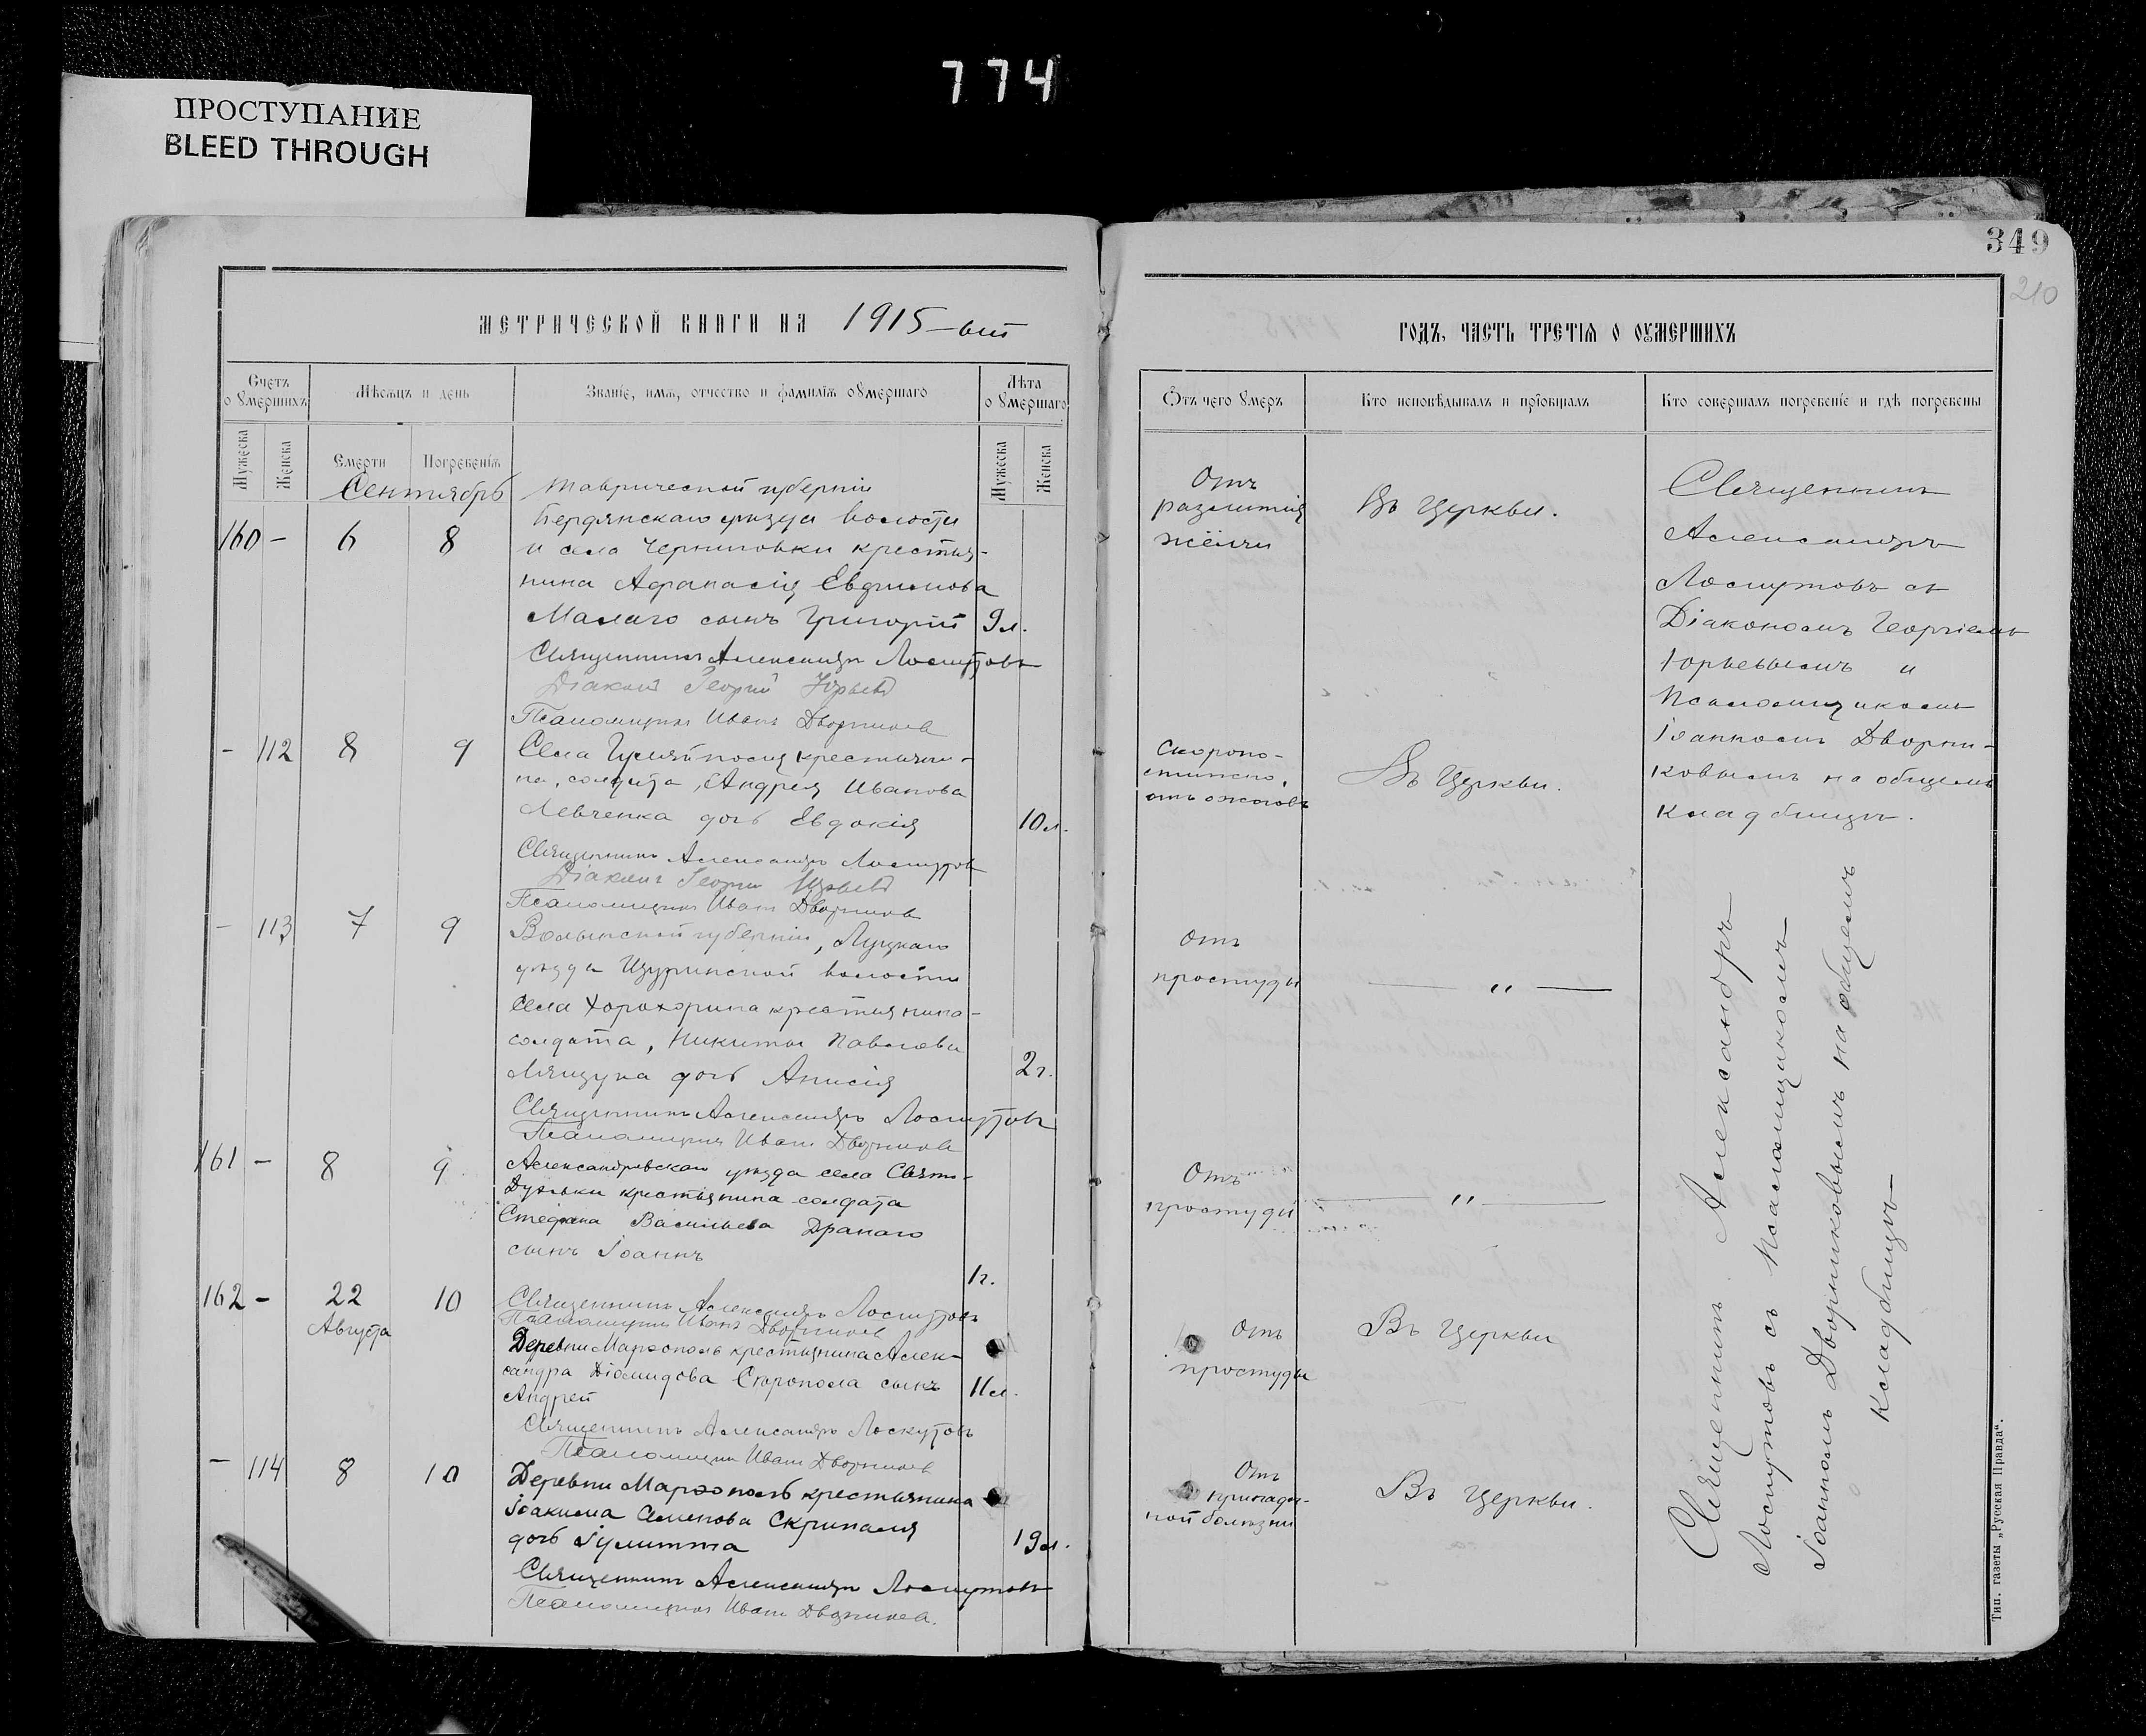 774
ПРОСТУПАНИЕ
BLEED THROUGH
349
210
МЕТРИЧЕСКОЙ КНИГИ НА 1915-ый
Счетъ о умершихъ
Мѣсяцъ и день
Званіе, имя, отчество и фамилія умершаго
Лѣта о умершаго
Мужеска
Женска
Смерти
Погребенія
Мужеска
Женска
Сентябрь
Таврической губерніи
160 - 6 8
Бердянскаго уѣзда волости
и села Черниговки крестья-
нина Афанасія Евфимова
Малаго сынъ Григорій 9 л.
Священникъ Александръ Лоскутовъ
Діаконъ Георгій Юрьевъ
Псаломщикъ Иванъ Дворниковъ
- 112 8 9
Села Гуляйполя крестьяни-
на, солдата, Андрея Иванова
Левченка дочь Евдокія 10 л.
Священникъ Александръ Лоскутовъ
Діаконъ Георгій Юрьевъ
Псаломщикъ Иванъ Дворниковъ
- 113 7 9
Волынской губерніи, Луцкаго
уѣзда волости
села Хорохорина крестьянина-
солдата, Никиты Павлова
дочь Анисія 2 г.
Священникъ Александръ Лоскутовъ
Псаломщикъ Иванъ Дворниковъ
161 - 8 9
Александровскаго уѣзда села Свято-
Духовки крестьянина солдата
Стефана Васильева Дранаго
сынъ Іоаннъ
1 г.
Священникъ Александръ Лоскутовъ
Псаломщикъ Иванъ Дворниковъ
162 - 22 Августа 10
Деревни Марфополь крестьянина Алек-
сандра Діомидова сынъ 11 л.
Андрей
Священникъ Александръ Лоскутовъ
Псаломщикъ Иванъ Дворниковъ
- 114 8 10
Деревни Марфополь крестьянина
Іоакима Семенова Скрипаля
дочь Іулитта 19 л.
Священникъ Александръ Лоскутовъ
Псаломщикъ Иванъ Дворниковъ.
ГОДЪ, ЧАСТЬ ТРЕТІЯ О УМЕРШИХЪ
Отъ чего умеръ
Кто исповѣдывалъ и пріобщалъ
Кто совершалъ погребеніе и гдѣ погребены
Отъ
разлитія
жёлчи
Въ Церкви.
Священникъ
Александръ
Лоскутовъ съ
Діакономъ Георгіемъ
Юрьевымъ и
Псаломщикомъ
Іоанномъ Дворни-
ковымъ на общемъ
кладбищѣ.
Скоропо-
стижно,
отъ ожоговъ
Въ Церкви.
Отъ
простуды
— " —
Отъ
простуды
— " —
Отъ
простуды
Въ Церкви
Отъ
припадоч-
ной болѣзни
Въ Церкви.
Священникъ Александръ
Лоскутовъ съ Псаломщикомъ
Іоанномъ Дворниковымъ на общемъ
кладбищѣ
Тип. газеты „Русская Правда“.